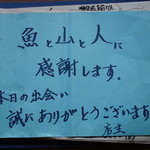 魚と山と人に
感謝します。
本日の出会い
誠にありがとうございます
店主